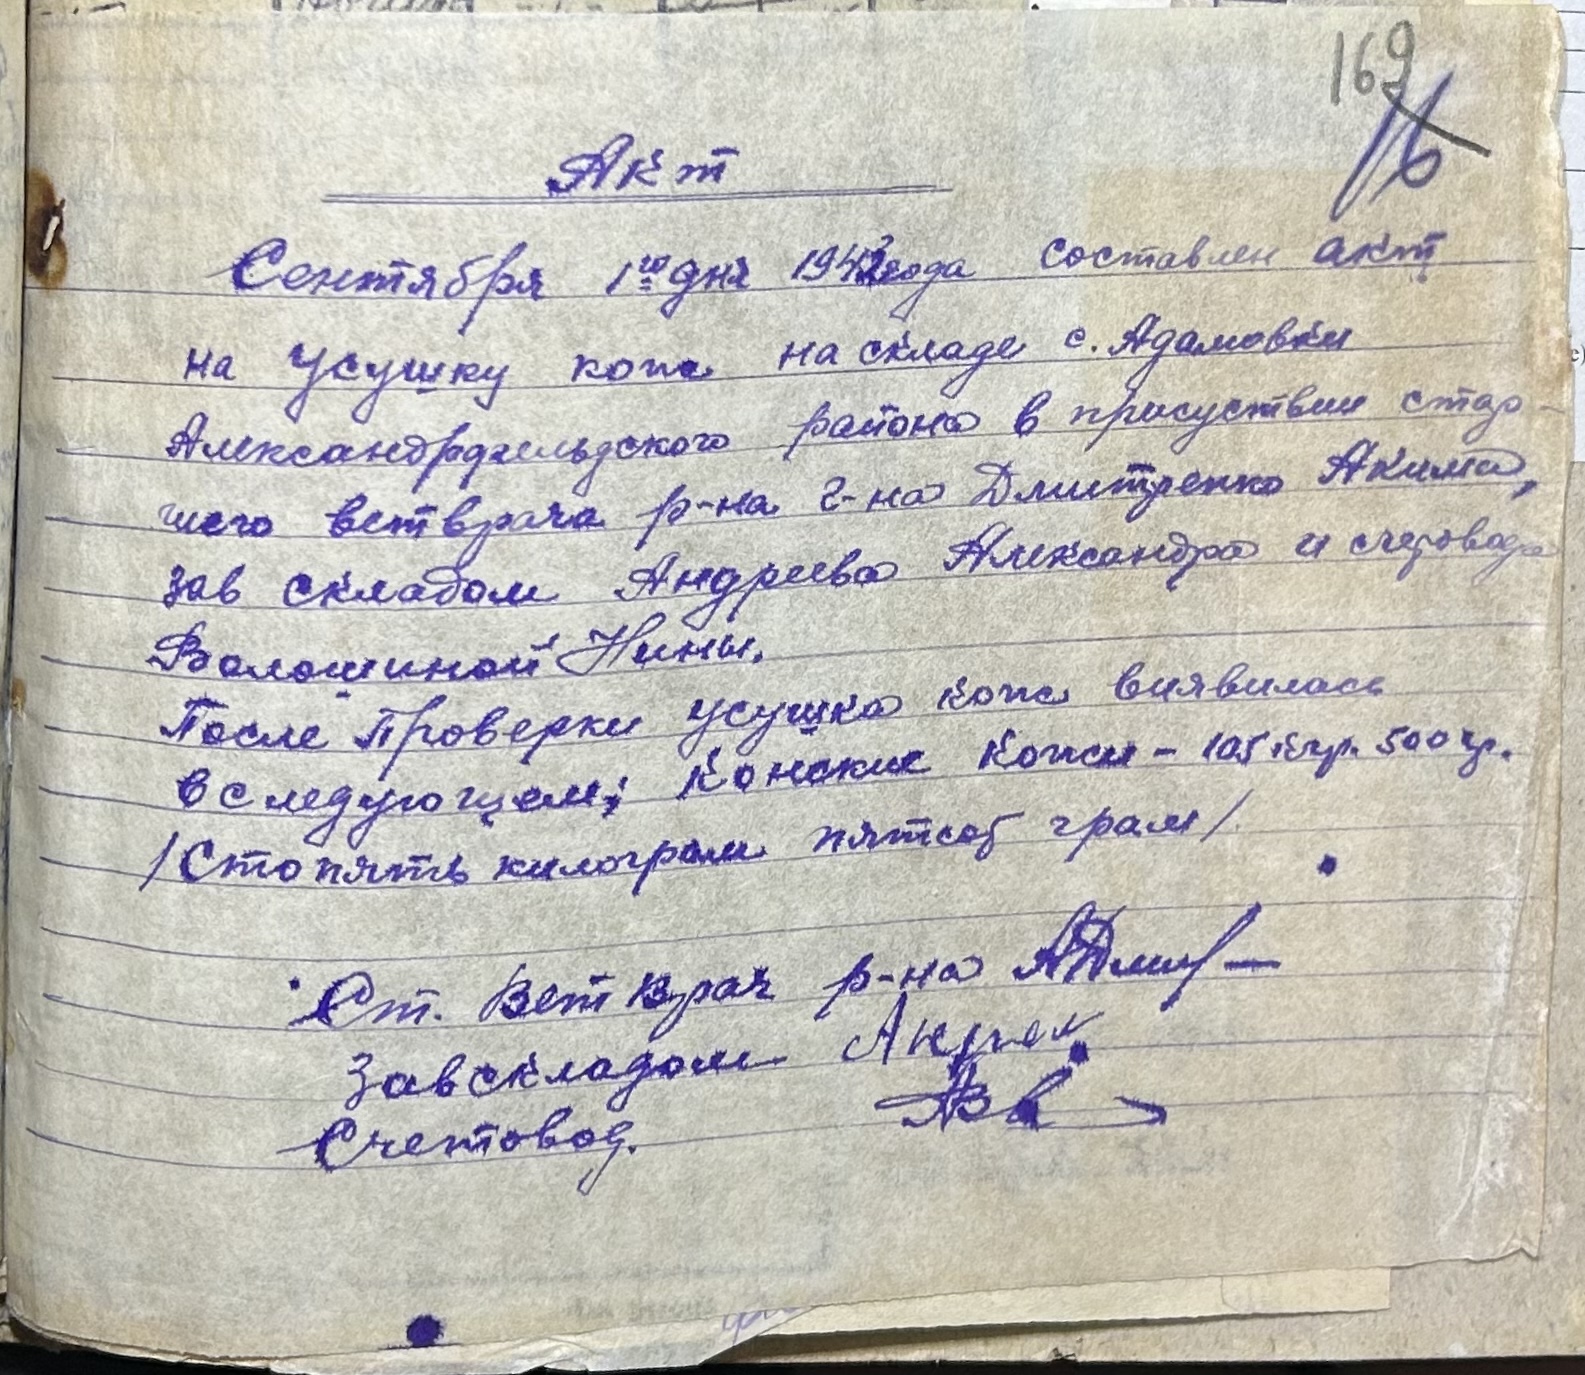 169
16
Акт
Сентября 1го дня 1943 года составлен акт
на усушку кож на складе с. Адамовки
Александрфельдского района в присуствии стар-
шего ветврача р-на г-на Дмитренко Акима,
зав складом Андреева Александра и счетовода
Волошиной Нины.
После проверки усушка кож виявилась
в следующем; Конские кожи - 105 кгр. 500 гр.
/Сто пять килограм пятсот грам/.
Ст. Ветврач р-на АДмит
Завскладом Андреев
Счетовод.